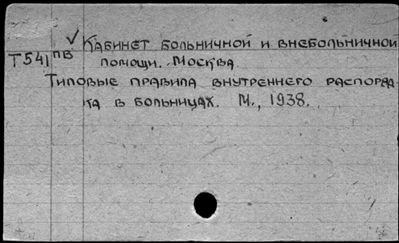 Кабинет больничной и внебольничной
Т541 пв помощи. Москва
Типовые правила внутреннего распоряд
ка в больницах. М., 1938.